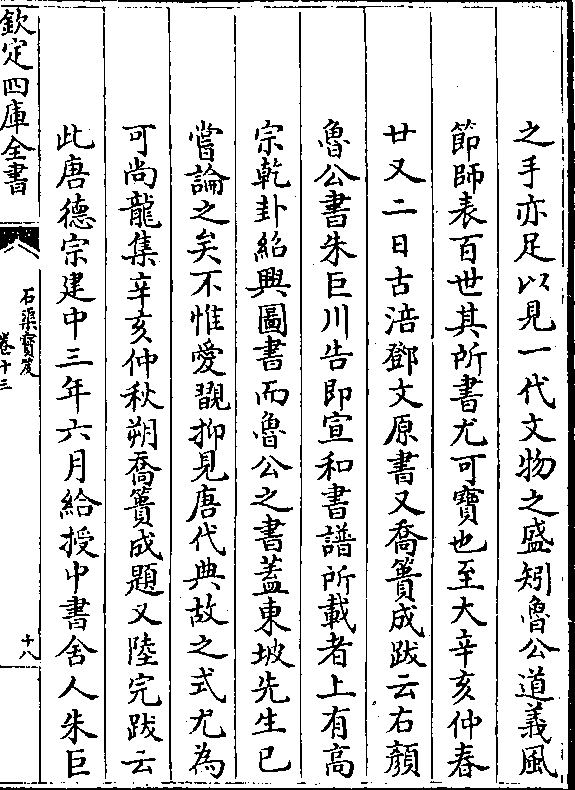 之手亦足以見一代文物之盛矧魯公道義風
節師表百世其所書尤可寶也至大辛亥仲春
廿又二日古涪鄧文原書又喬簣成跋云右顏
魯公書朱巨川告即宣和書譜所載者上有高
宗乾卦紹興圖書而魯公之書蓋東坡先生已
嘗論之矣不惟愛翫抑見唐代典故之式尤為
可尚龍集辛亥仲秋朔喬簣成題又陸完跋云
此唐德宗建中三年六月給授中書舍人朱巨
欽定四庫全書
石渠寶笈
卷十三
十八